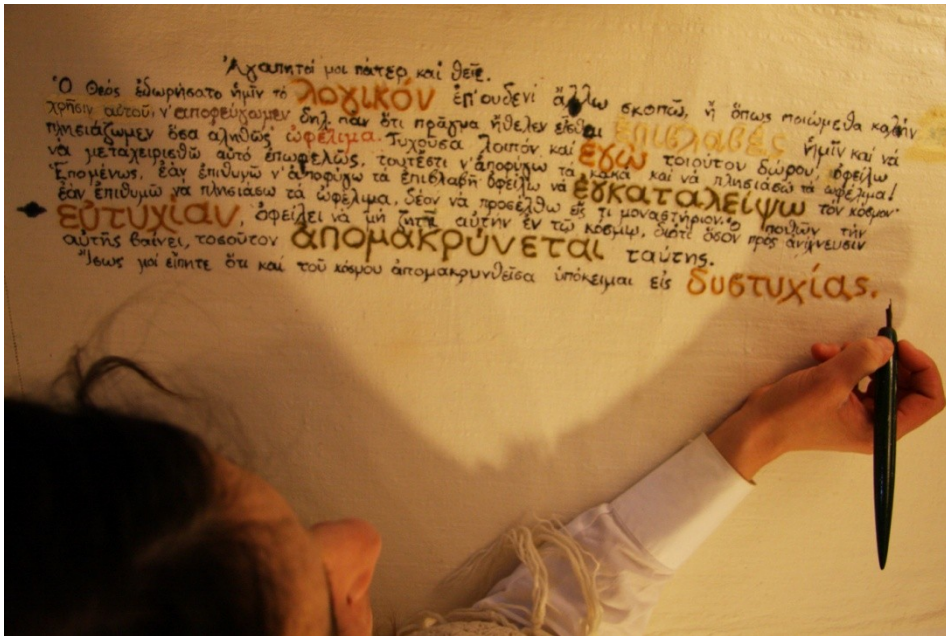 Ἀγαπητοί μοι πάτερ καί θεῖε.
Ὁ Θεός ἐδωρήσατο ἡμῖν τό λογικόν ἐπ' οὐδενί ἄλλῳ σκοπῶ, ἤ ὅπως ποιώμεθα καλήν
χρῆσιν αὐτοῦ, ν' ἀποφεύγωμεν δηλ. πᾶν ὅτι πρᾶγμα ἤθελεν εἶσθαι ἐπιβλαβές ἡμῖν καί νά
πλησιάζωμεν ὅσα ἀληθῶς ὠφέλιμα. Τυχοῦσα λοιπόν καί ἐγώ τοιούτου δώρου, ὀφείλω
νά μεταχειρισθῶ αὐτό ἐπωφελῶς, ταυτέστι ν' ἀποφύγω τά κακά καί νά πλησιάσω τά ὠφέλιμα!
Ἑπομένως, ἐάν ἐπιθυμῶ ν' ἀποφύγω τά ἐπιβλαβῆ ὀφείλω νά ἐγκαταλείψω τόν κόσμον·
ἐάν ἐπιθυμῶ νά πλησιάσω τά ὠφέλιμα, δέον νά προσέλθω εἰς τι μοναστήριον. Ὁ ποθῶν τήν
εὐτυχίαν, ὀφείλει νά μή ζητῇ αὐτήν ἐν τῷ κόσμῳ, διότι ὅσον πρός ἀνίχνευσιν
αὐτῆς βαίνει, τοσοῦτον ἀπομακρύνεται ταύτης.
Ἴσως μοί εἴπητε ὅτι καί τοῦ κόσμου ἀπομακρυνθεῖσα ὑπόκειμαι εἰς δυστυχίας.